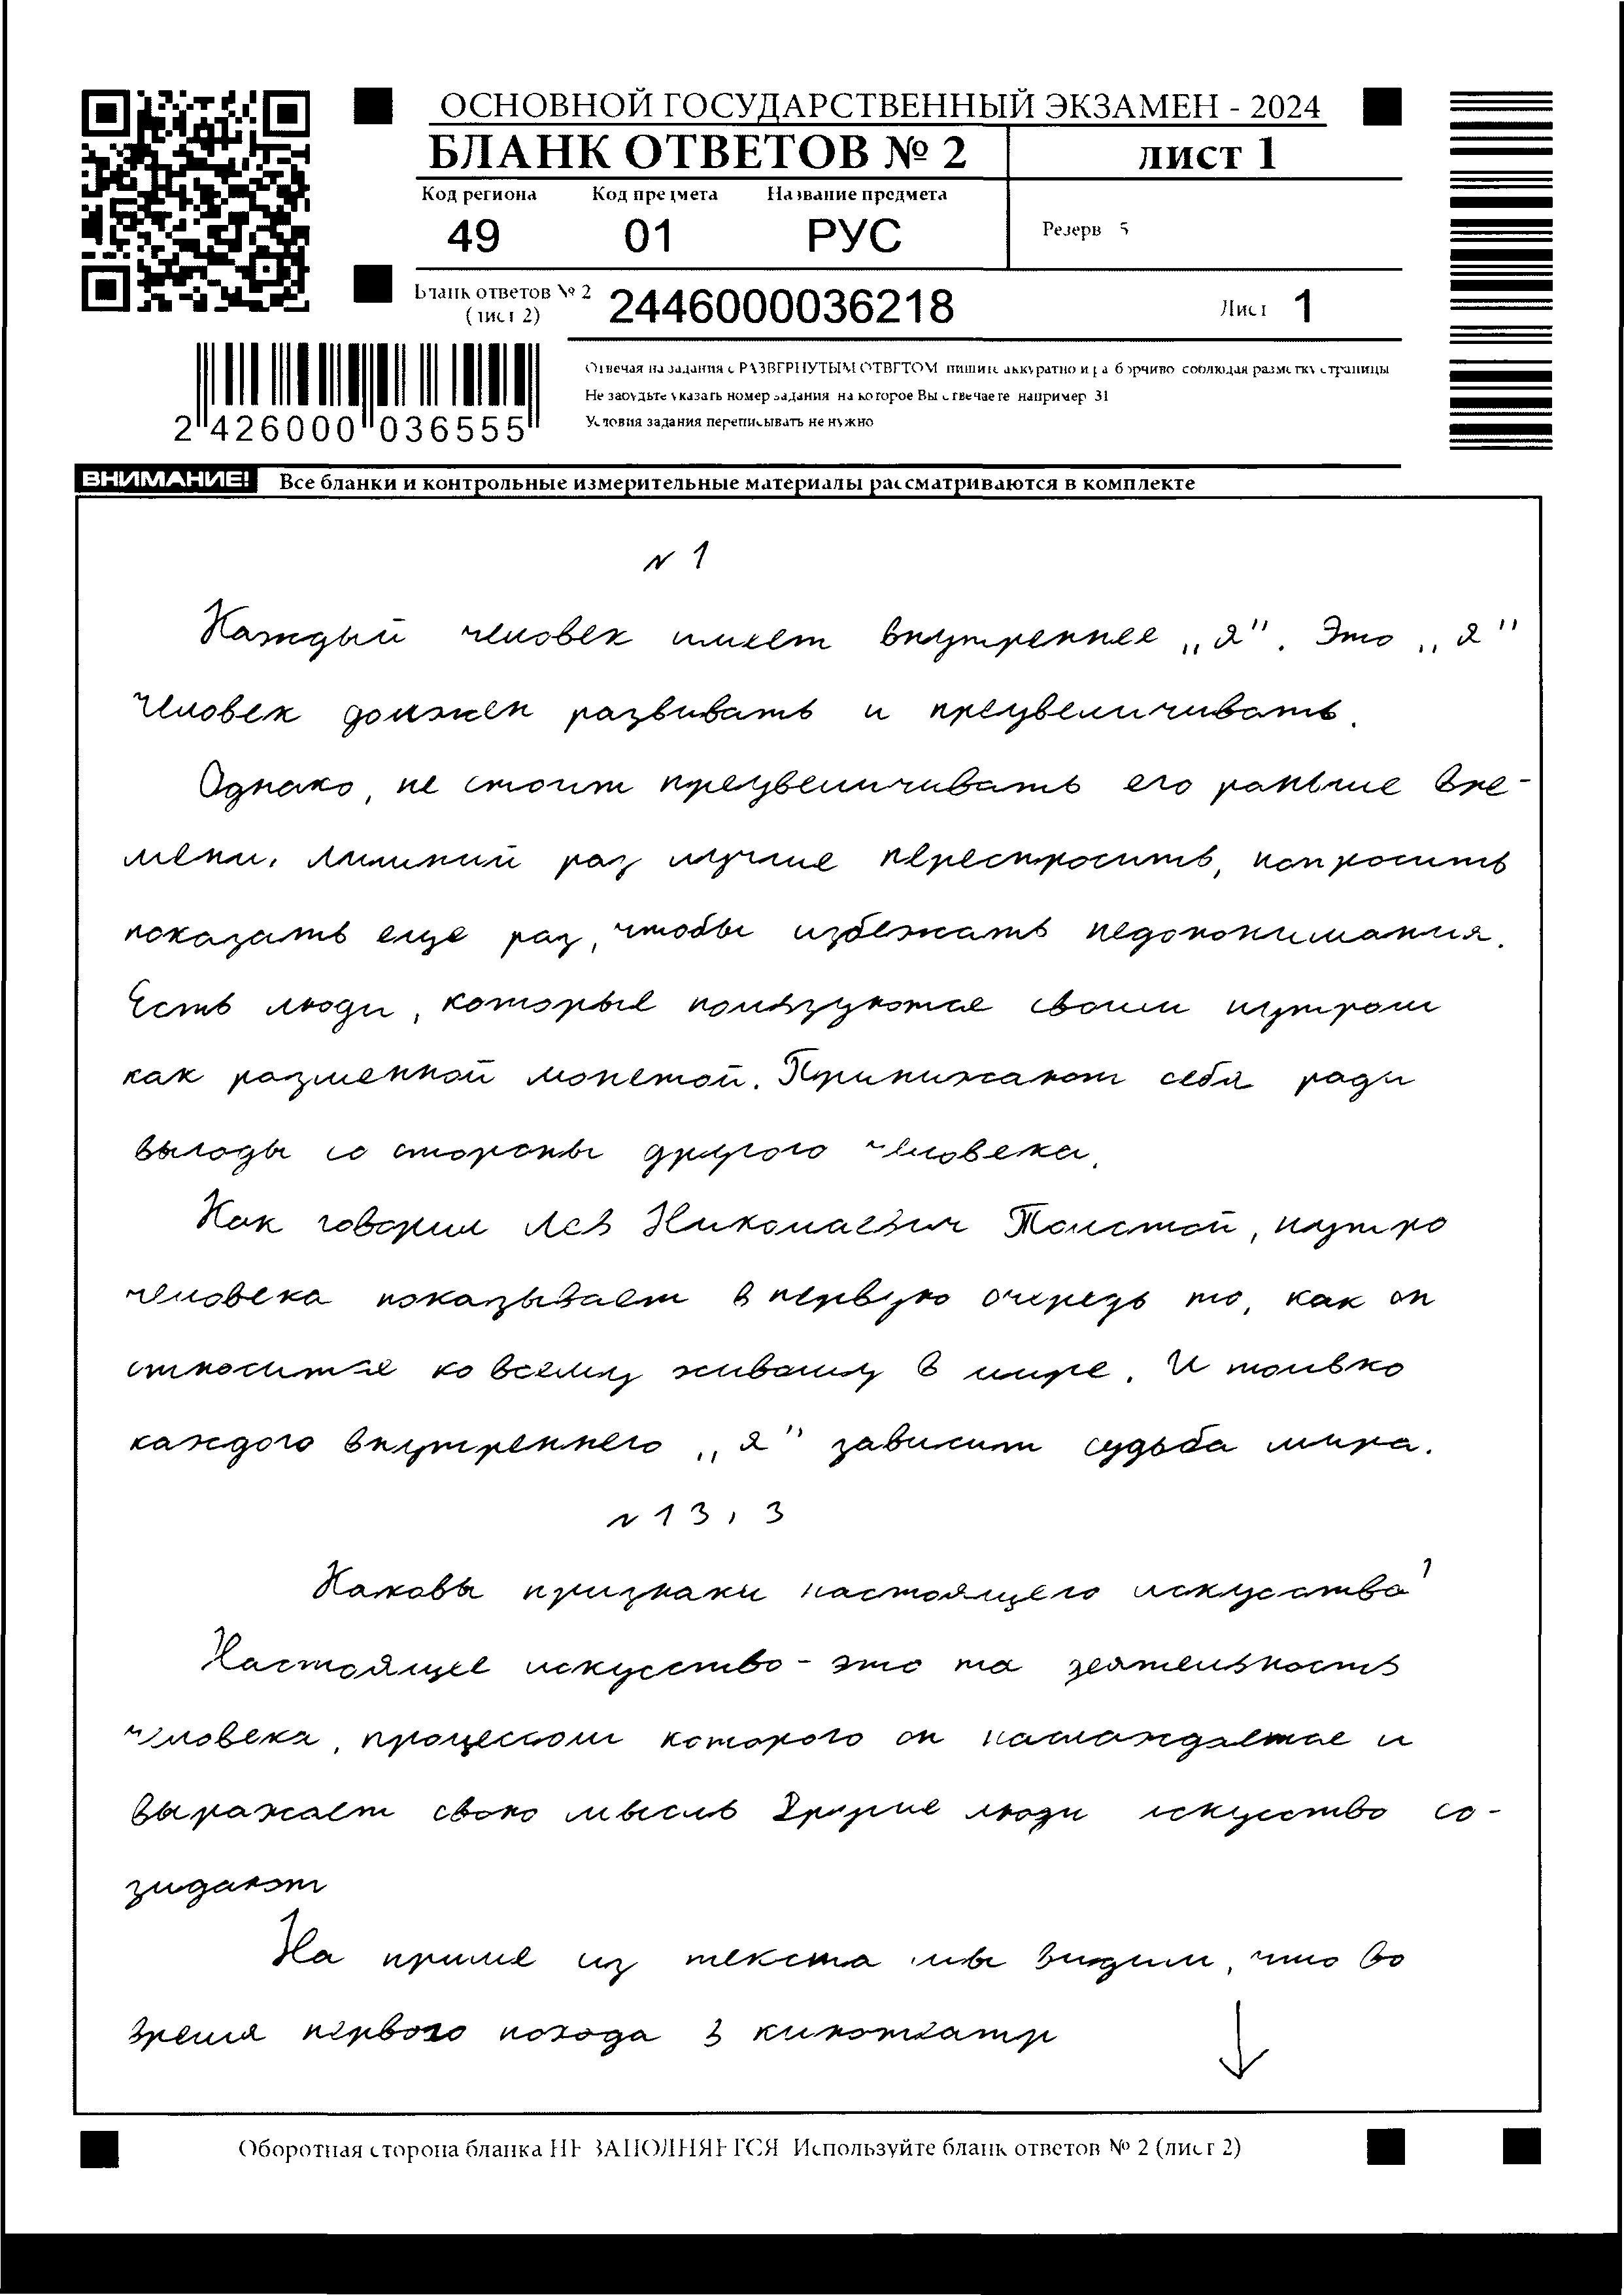 ОСНОВНОЙ ГОСУДАРСТВЕННЫЙ ЭКЗАМЕН - 2024
БЛАНК ОТВЕТОВ № 2
ЛИСТ 1
Код региона Код предмета Название предмета
49 01 РУС
Резерв 5
Бланк ответов № 2
(лист 2)
2446000036218
Лист 1
Отвечая на задания с РАЗВЕРНУТЫМ ОТВЕТОМ пишите аккуратно и разборчиво соблюдая разметку страницы
Не забудьте указать номер задания на которое Вы отвечаете например 31
Условия задания переписывать не нужно
2426000036555
ВНИМАНИЕ! Все бланки и контрольные измерительные материалы рассматриваются в комплекте
N 1
Каждый человек имеет внутреннее „я". Это „я"
человек должен развивать и преувеличивать.
Однако, не стоит преувеличивать его раньше вре-
мени. Лишний раз лучше переспросить, попросить
показать еще раз, чтобы избежать недопонимания.
Есть люди, которые пользуются своим нутром
как разменной монетой. Принижают себя ради
выгоды со стороны другого человека.
Как говорил Лев Николаевич Толстой, нутро
человека показывает в первую очередь то, как он
относится ко всему живому в мире. И только
каждого внутреннего „я" зависит судьба мира.
N 13.3
Каковы признаки настоящего искусства?
Настоящее искусство - это та деятельность
человека, процессом которого он наслаждается и
выражает свою мысль Другие люди искусство со-
зидают
На приме из текста мы видим, что во
время первого похода в кинотеатр
Оборотная сторона бланка НЕ ЗАПОЛНЯЕТСЯ Используйте бланк ответов № 2 (лист 2)